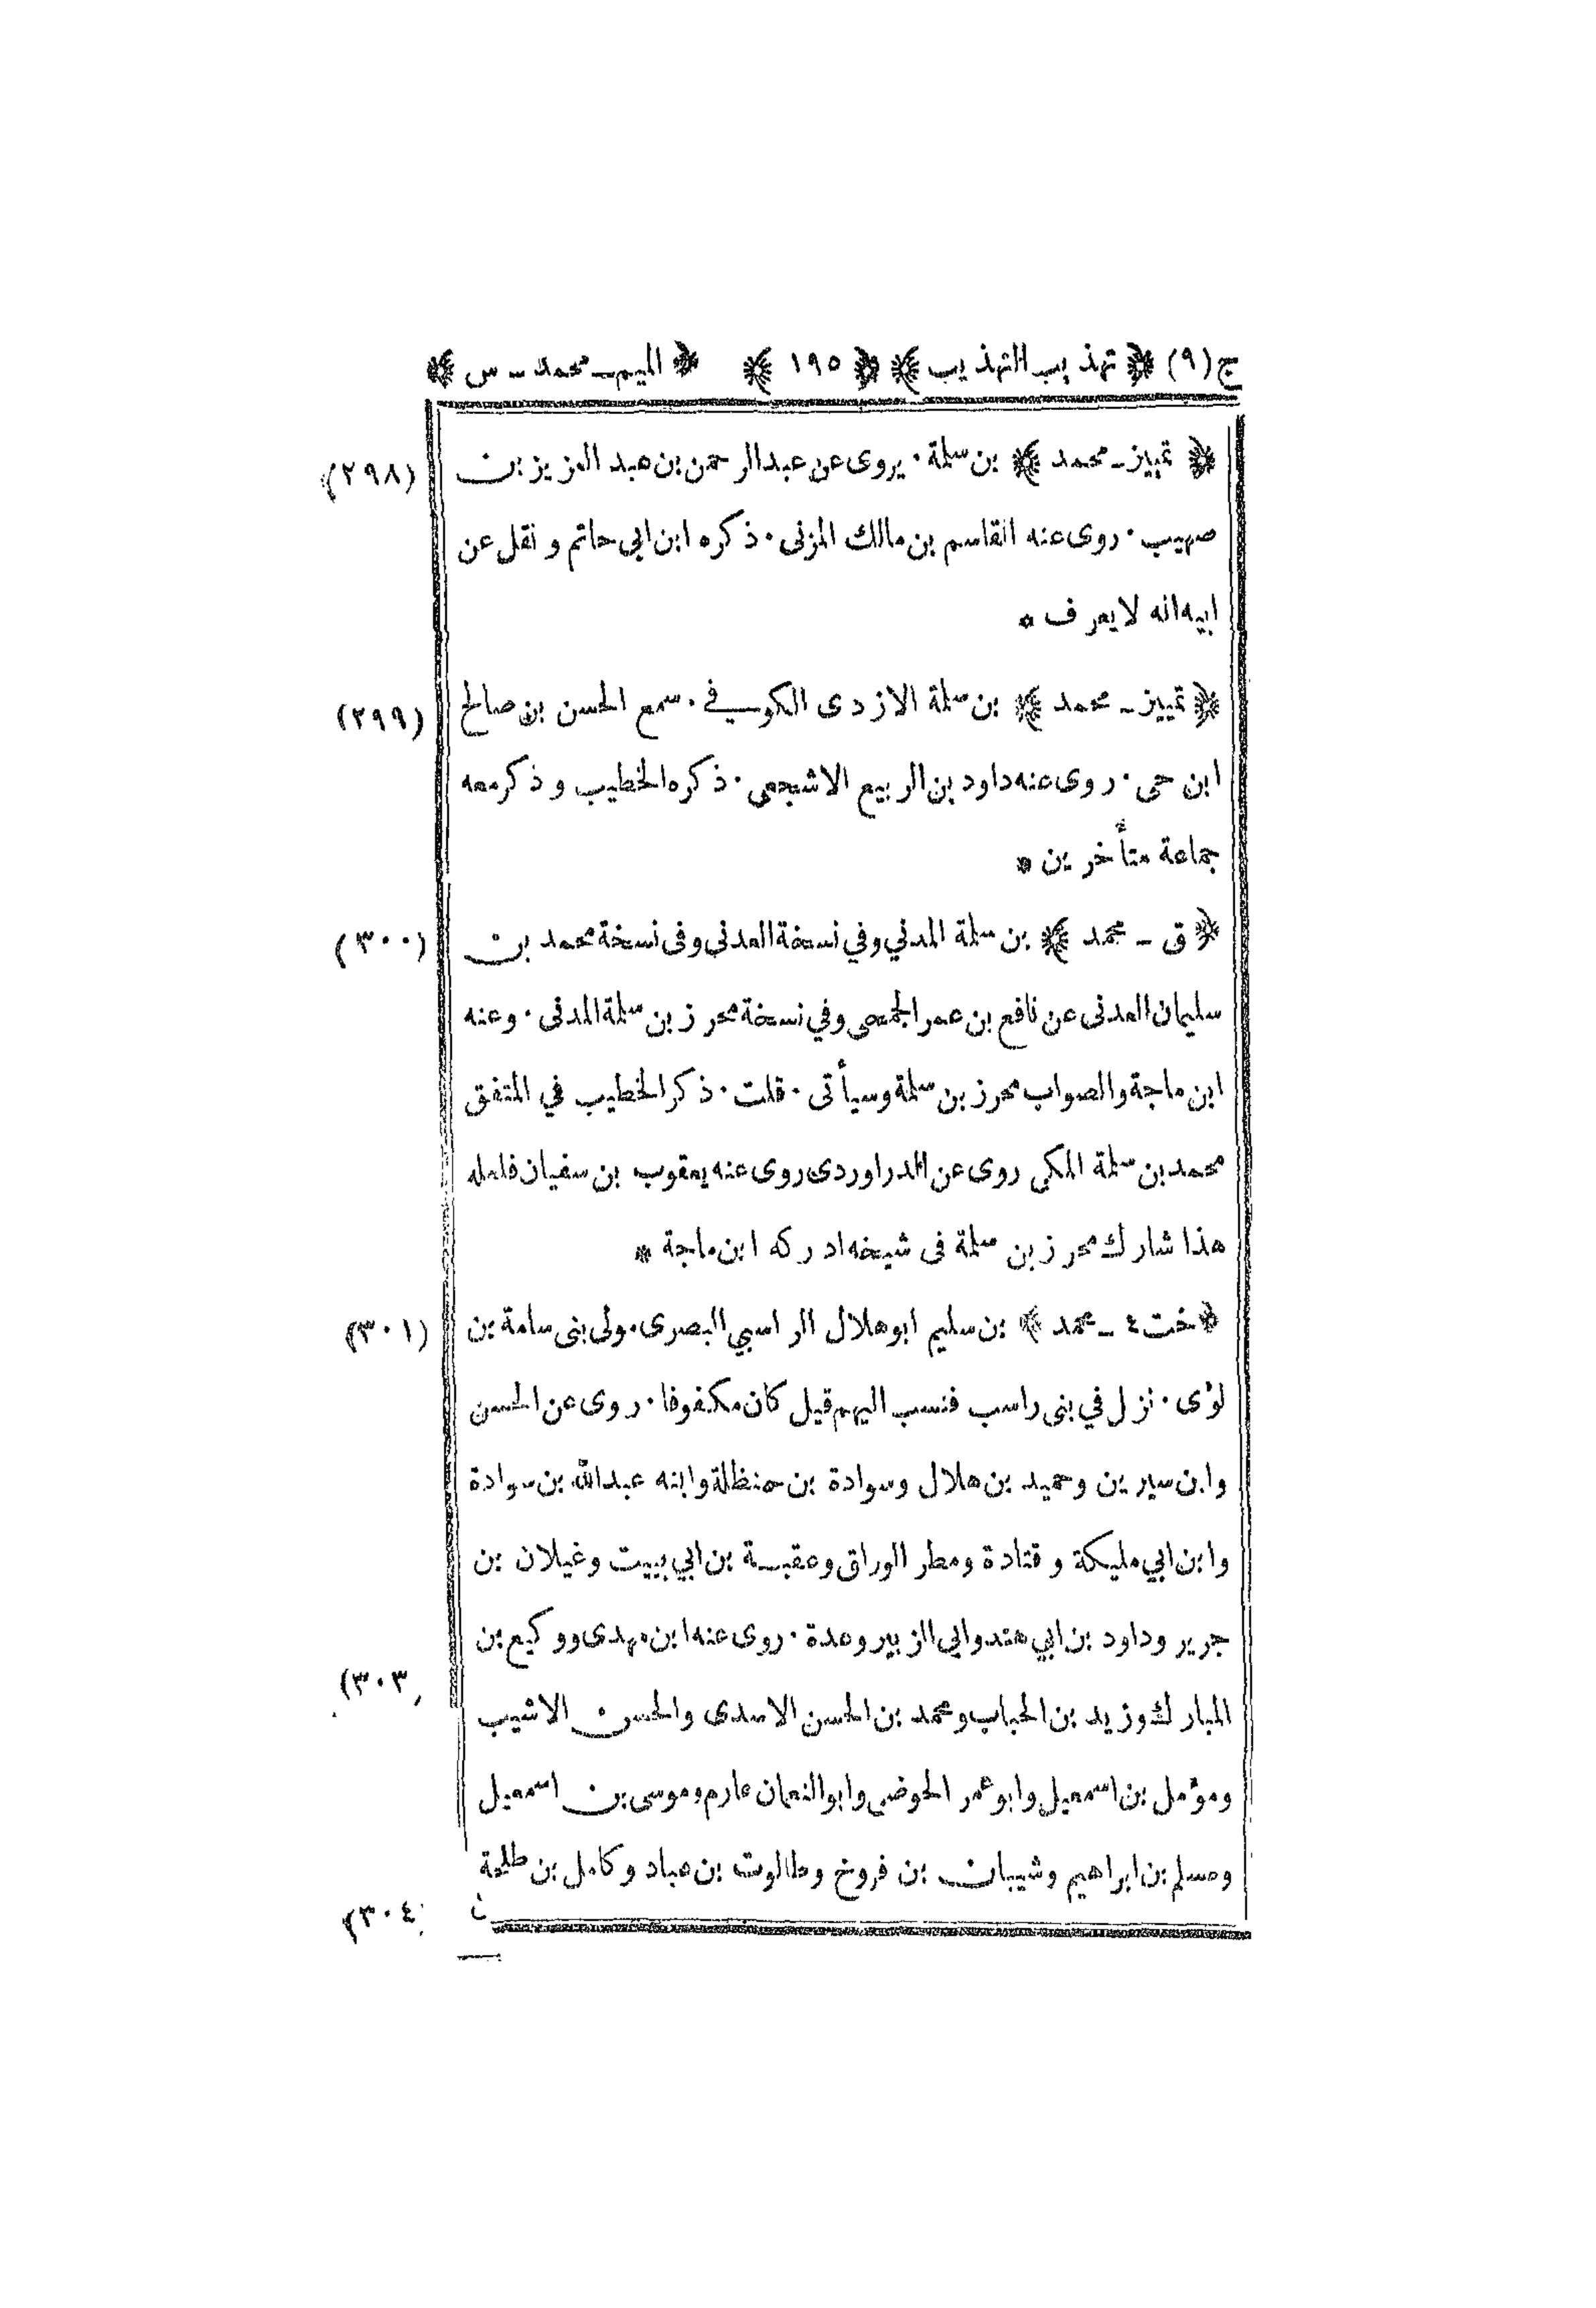 ج(٩) ﴿ تهذيب التهذيب ﴾ ﴿ ١٩٥ ﴾ ﴿ الميم ـ محمد ـ س ﴾
﴿ تمييز ـ محمد ﴾ بن سلمة · يروى عن عبد الرحمن بن عبد العزيز بن (٢٩٨)
صهيب · روى عنه القاسم بن مالك المزنى · ذكره ابن ابى حاتم و نقل عن
ابيه انه لا يعرف *
﴿ تمييز ـ محمد ﴾ بن سلمة الازدى الكوفي · سمع الحسن بن صالح (٢٩٩)
ابن حى · روى عنه داود بن الربيع الاشجعى · ذكره الخطيب و ذكر معه
جماعة متأخرين *
﴿ ق ـ محمد ﴾ بن سلمة المدني وفي نسخة العدنى وفى نسخة محمد بن (٣٠٠)
سليمان العدنى عن نافع بن عمر الجمحى وفي نسخة محرز بن سلمة المدنى · وعنه
ابن ماجة والصواب محرز بن سلمة وسيأتى · قلت · ذكر الخطيب في المتفق
محمد بن سلمة المكى روى عن الدراوردى روى عنه يعقوب بن سفيان فلعله
هذا شارك محرز بن سلمة فى شيخه ادركه ابن ماجة *
﴿ خت ٤ ـ محمد ﴾ بن سليم ابو هلال الراسبي البصرى مولى بنى سامة بن (٣٠١)
لؤى · نزل في بنى راسب فنسب اليهم قيل كان مكفوفا · روى عن الحسن
وابن سيرين وحميد بن هلال وسوادة بن حنظلة وابنه عبدالله بن سوادة
وابن ابي مليكة و قتادة ومطر الوراق وعقبة بن ابي ثبيت وغيلان بن
جرير وداود بن ابي هند وابى الزبير وعدة · روى عنه ابن مهدى ووكيع بن
(٣٠٣)
المبارك وزيد بن الحباب ومحمد بن الحسن الاسدى والحسن الاشيب
ومؤمل بن اسمعيل وابو عمر الحوضى وابو النعمان عارم وموسى بن اسمعيل
ومسلم بن ابراهيم وشيبان بن فروخ وطالوت بن عباد وكامل بن طلحة
(٣٠٤)